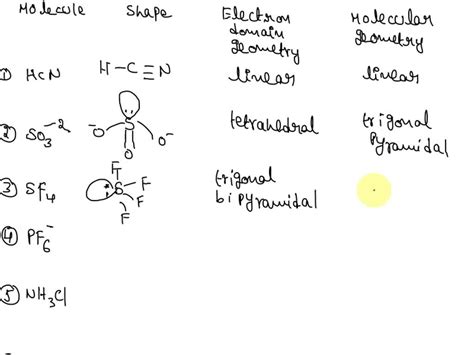 Molecule Shape Electron domain geometry Molecular geometry
① HCN H-C≡N linear linear
② SO₃⁻² ⁻O S O⁻ O tetrahedral trigonal pyramidal
③ Sf₄ F S F F F trigonal bipyramidal
④ PF₆⁻
⑤ NH₃Cl